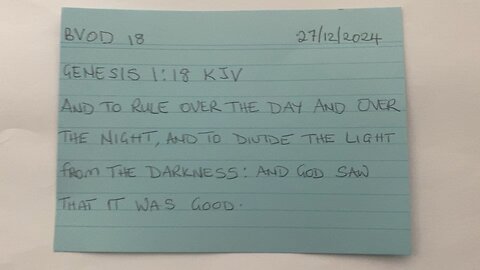 BVOD 18 27/12/2024
GENESIS 1:18 KJV
AND TO RULE OVER THE DAY AND OVER
THE NIGHT, AND TO DIVIDE THE LIGHT
from THE DARKNESS: AND GOD SAW
THAT IT WAS GOOD.